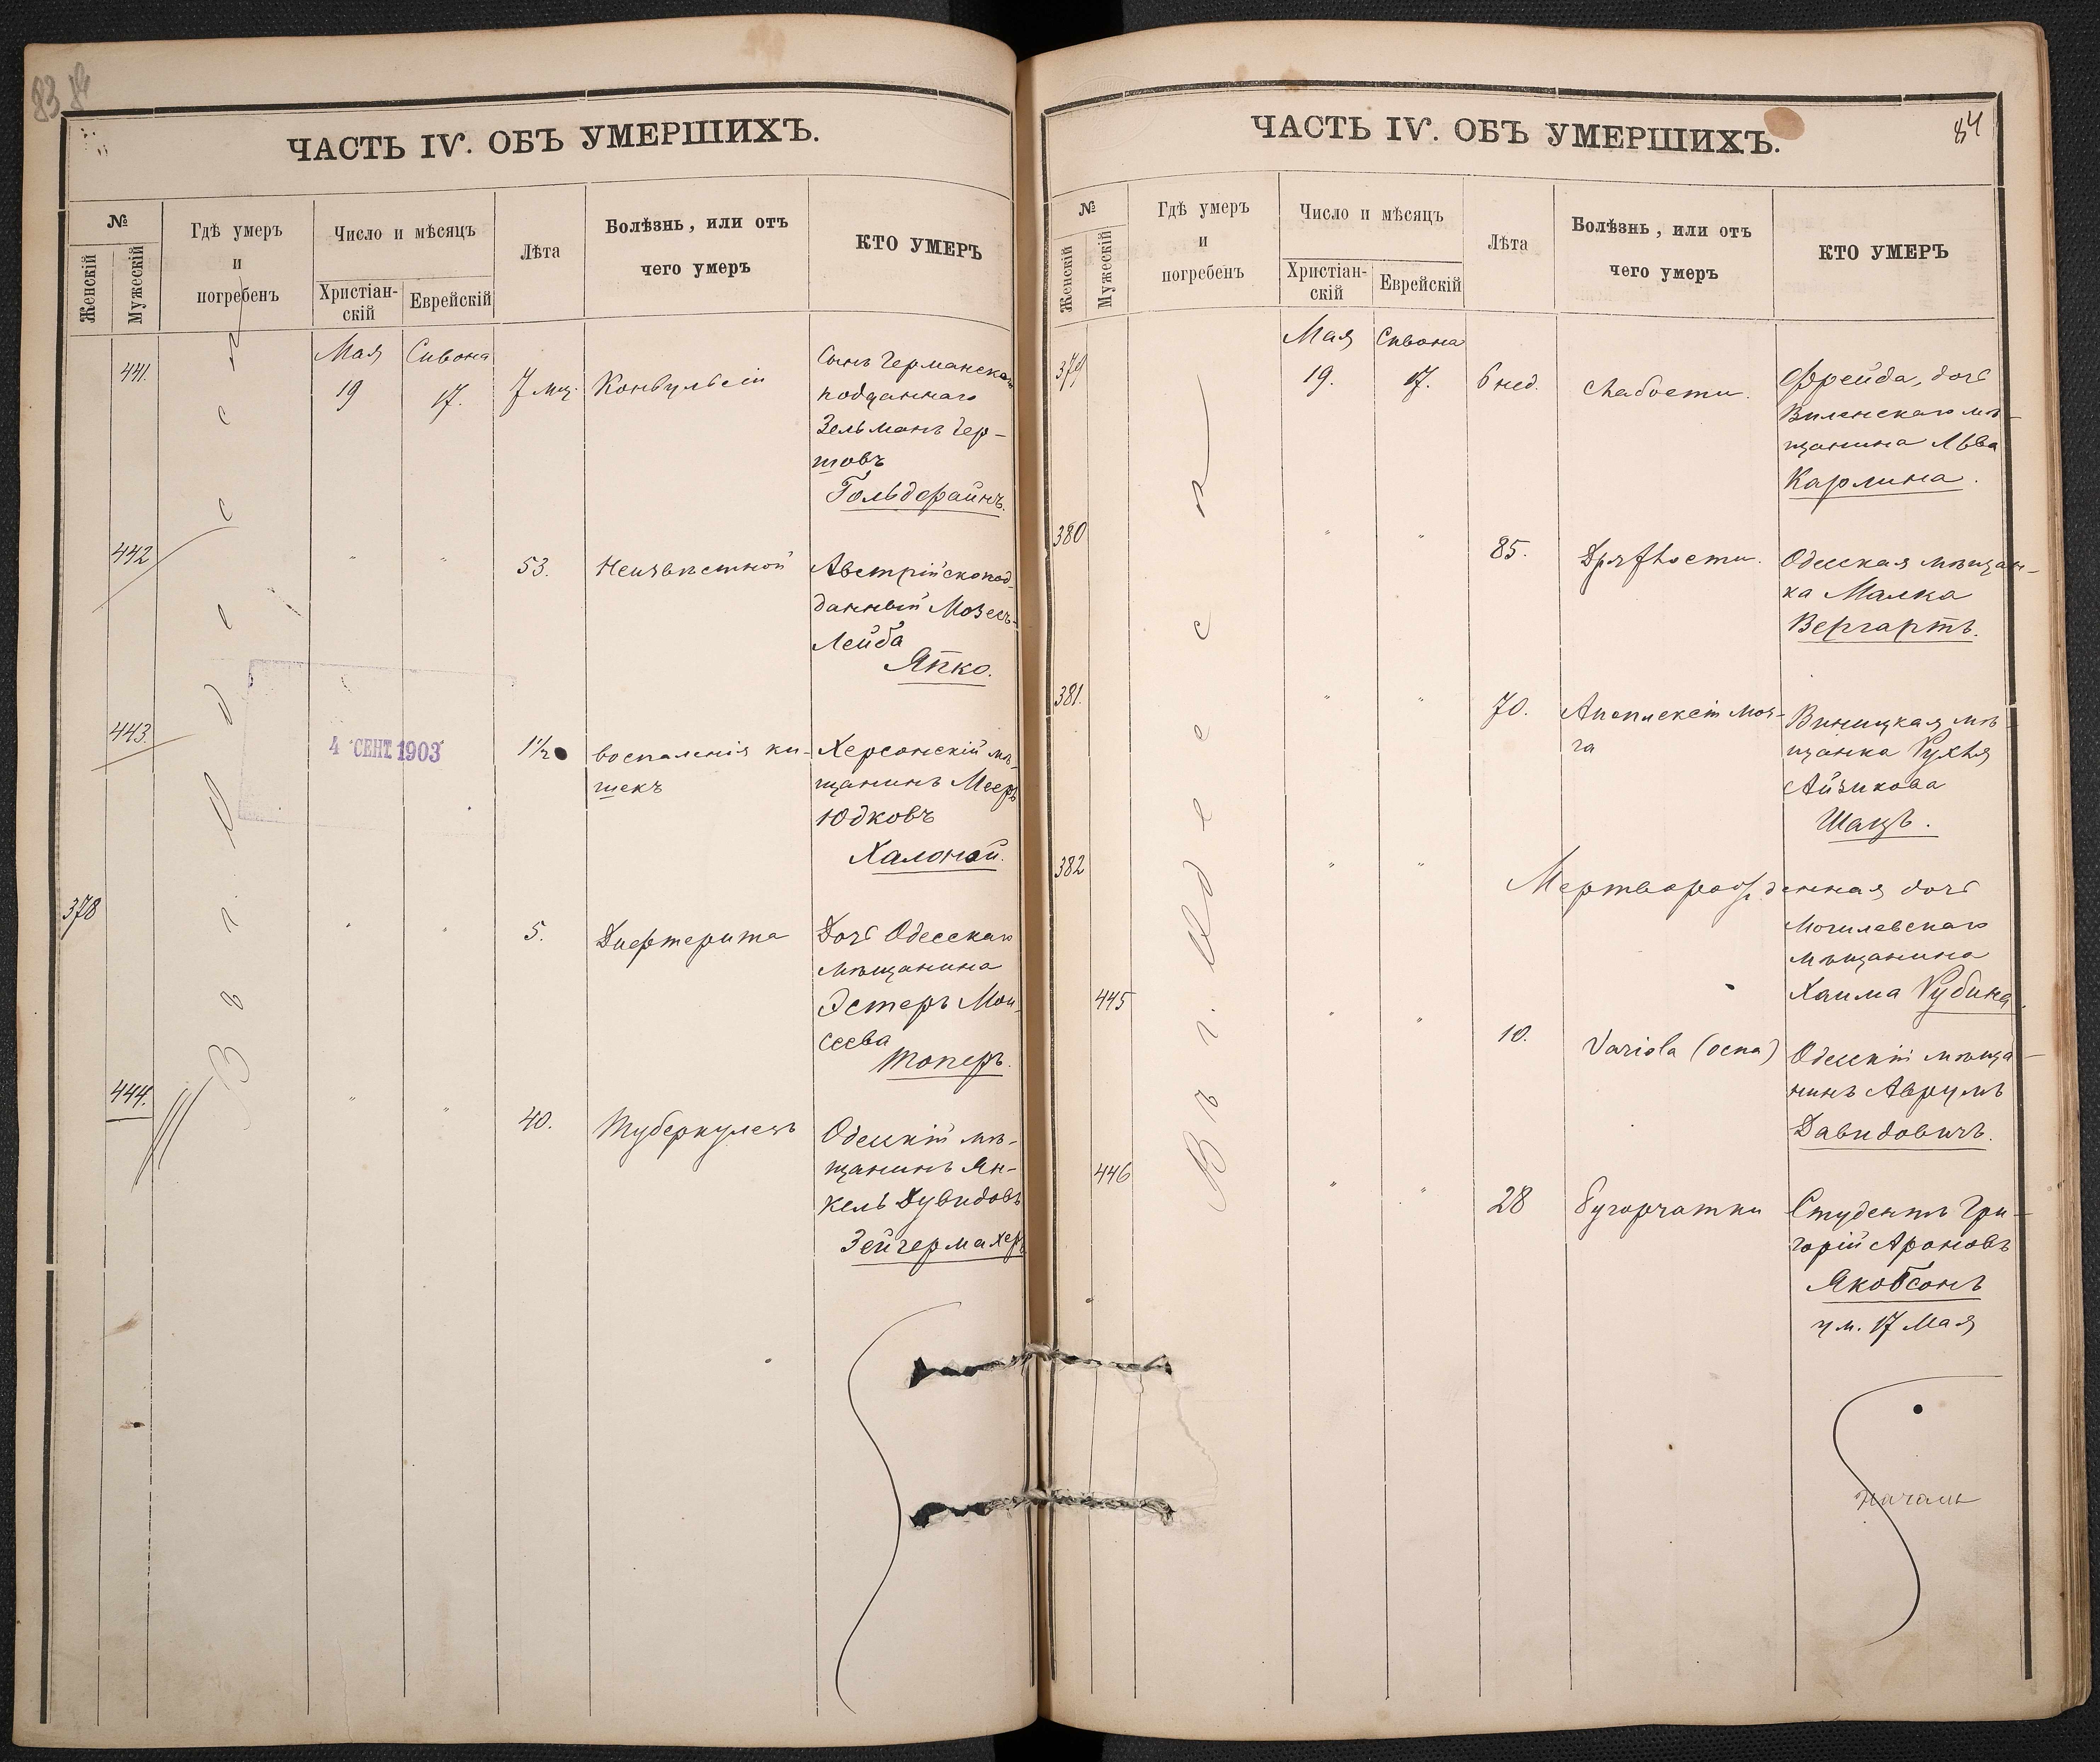 83
ЧАСТЬ IV. ОБЪ УМЕРШИХЪ.
№
Женскій
Мужескій
Гдѣ умеръ
и
погребенъ
Число и мѣсяцъ
Христіан-
скій
Еврейскій
Лѣта
Болѣзнь, или отъ
чего умеръ
КТО УМЕРЪ
Въ г. Одессѣ
441.
Мая
19
Сивона
17.
7 мц.
Конвульсіи
Сынъ Германскаго
подданнаго
Зельманъ Гер-
шовъ
Гольдфайнъ.
442
"
"
53.
Неизвѣстной
Австрійскопод-
данный Мозесъ-
Лейба
Япко.
443.
4 СЕНТ. 1903
1 1/2
воспаленія ки-
шекъ
Херсонскій мѣ-
щанинъ Мееръ
Юдковъ
Халоной.
378
"
"
5.
Дифтерита
Дочь Одесскаго
мѣщанина
Эстеръ Мои-
сеева
Топеръ.
444.
"
"
40.
Туберкулезъ
Одесскій мѣ-
щанинъ Ян-
кель Дувидовъ
Зейгермахеръ
84
ЧАСТЬ IV. ОБЪ УМЕРШИХЪ.
№
Женскій
Мужескій
Гдѣ умеръ
и
погребенъ
Число и мѣсяцъ
Христіан-
скій
Еврейскій
Лѣта
Болѣзнь, или отъ
чего умеръ
КТО УМЕРЪ
Въ г. Одессѣ
379
Мая
19.
Сивона
17.
6 нед.
Слабости.
Фрейда, дочь
Виленскаго мѣ-
щанина Льва
Карлина.
380
"
"
85.
Дряхлости.
Одесская мѣщан-
ка Малка
Вергартъ.
381.
"
"
70.
Апоплексіи моз-
га
Виницкая мѣ-
щанка Рухля
Айзикова
Шацъ.
382
"
"
Мертворожденная дочь
Могилевскаго
мѣщанина
Хаима Рубина.
445
"
"
10.
Variola (оспа)
Одесскій мѣща-
нинъ Аврумъ
Давидовичъ.
446
"
"
28
бугорчатки
Студентъ Гри-
горій Ароновъ
Якобсонъ
ум. 17 Мая